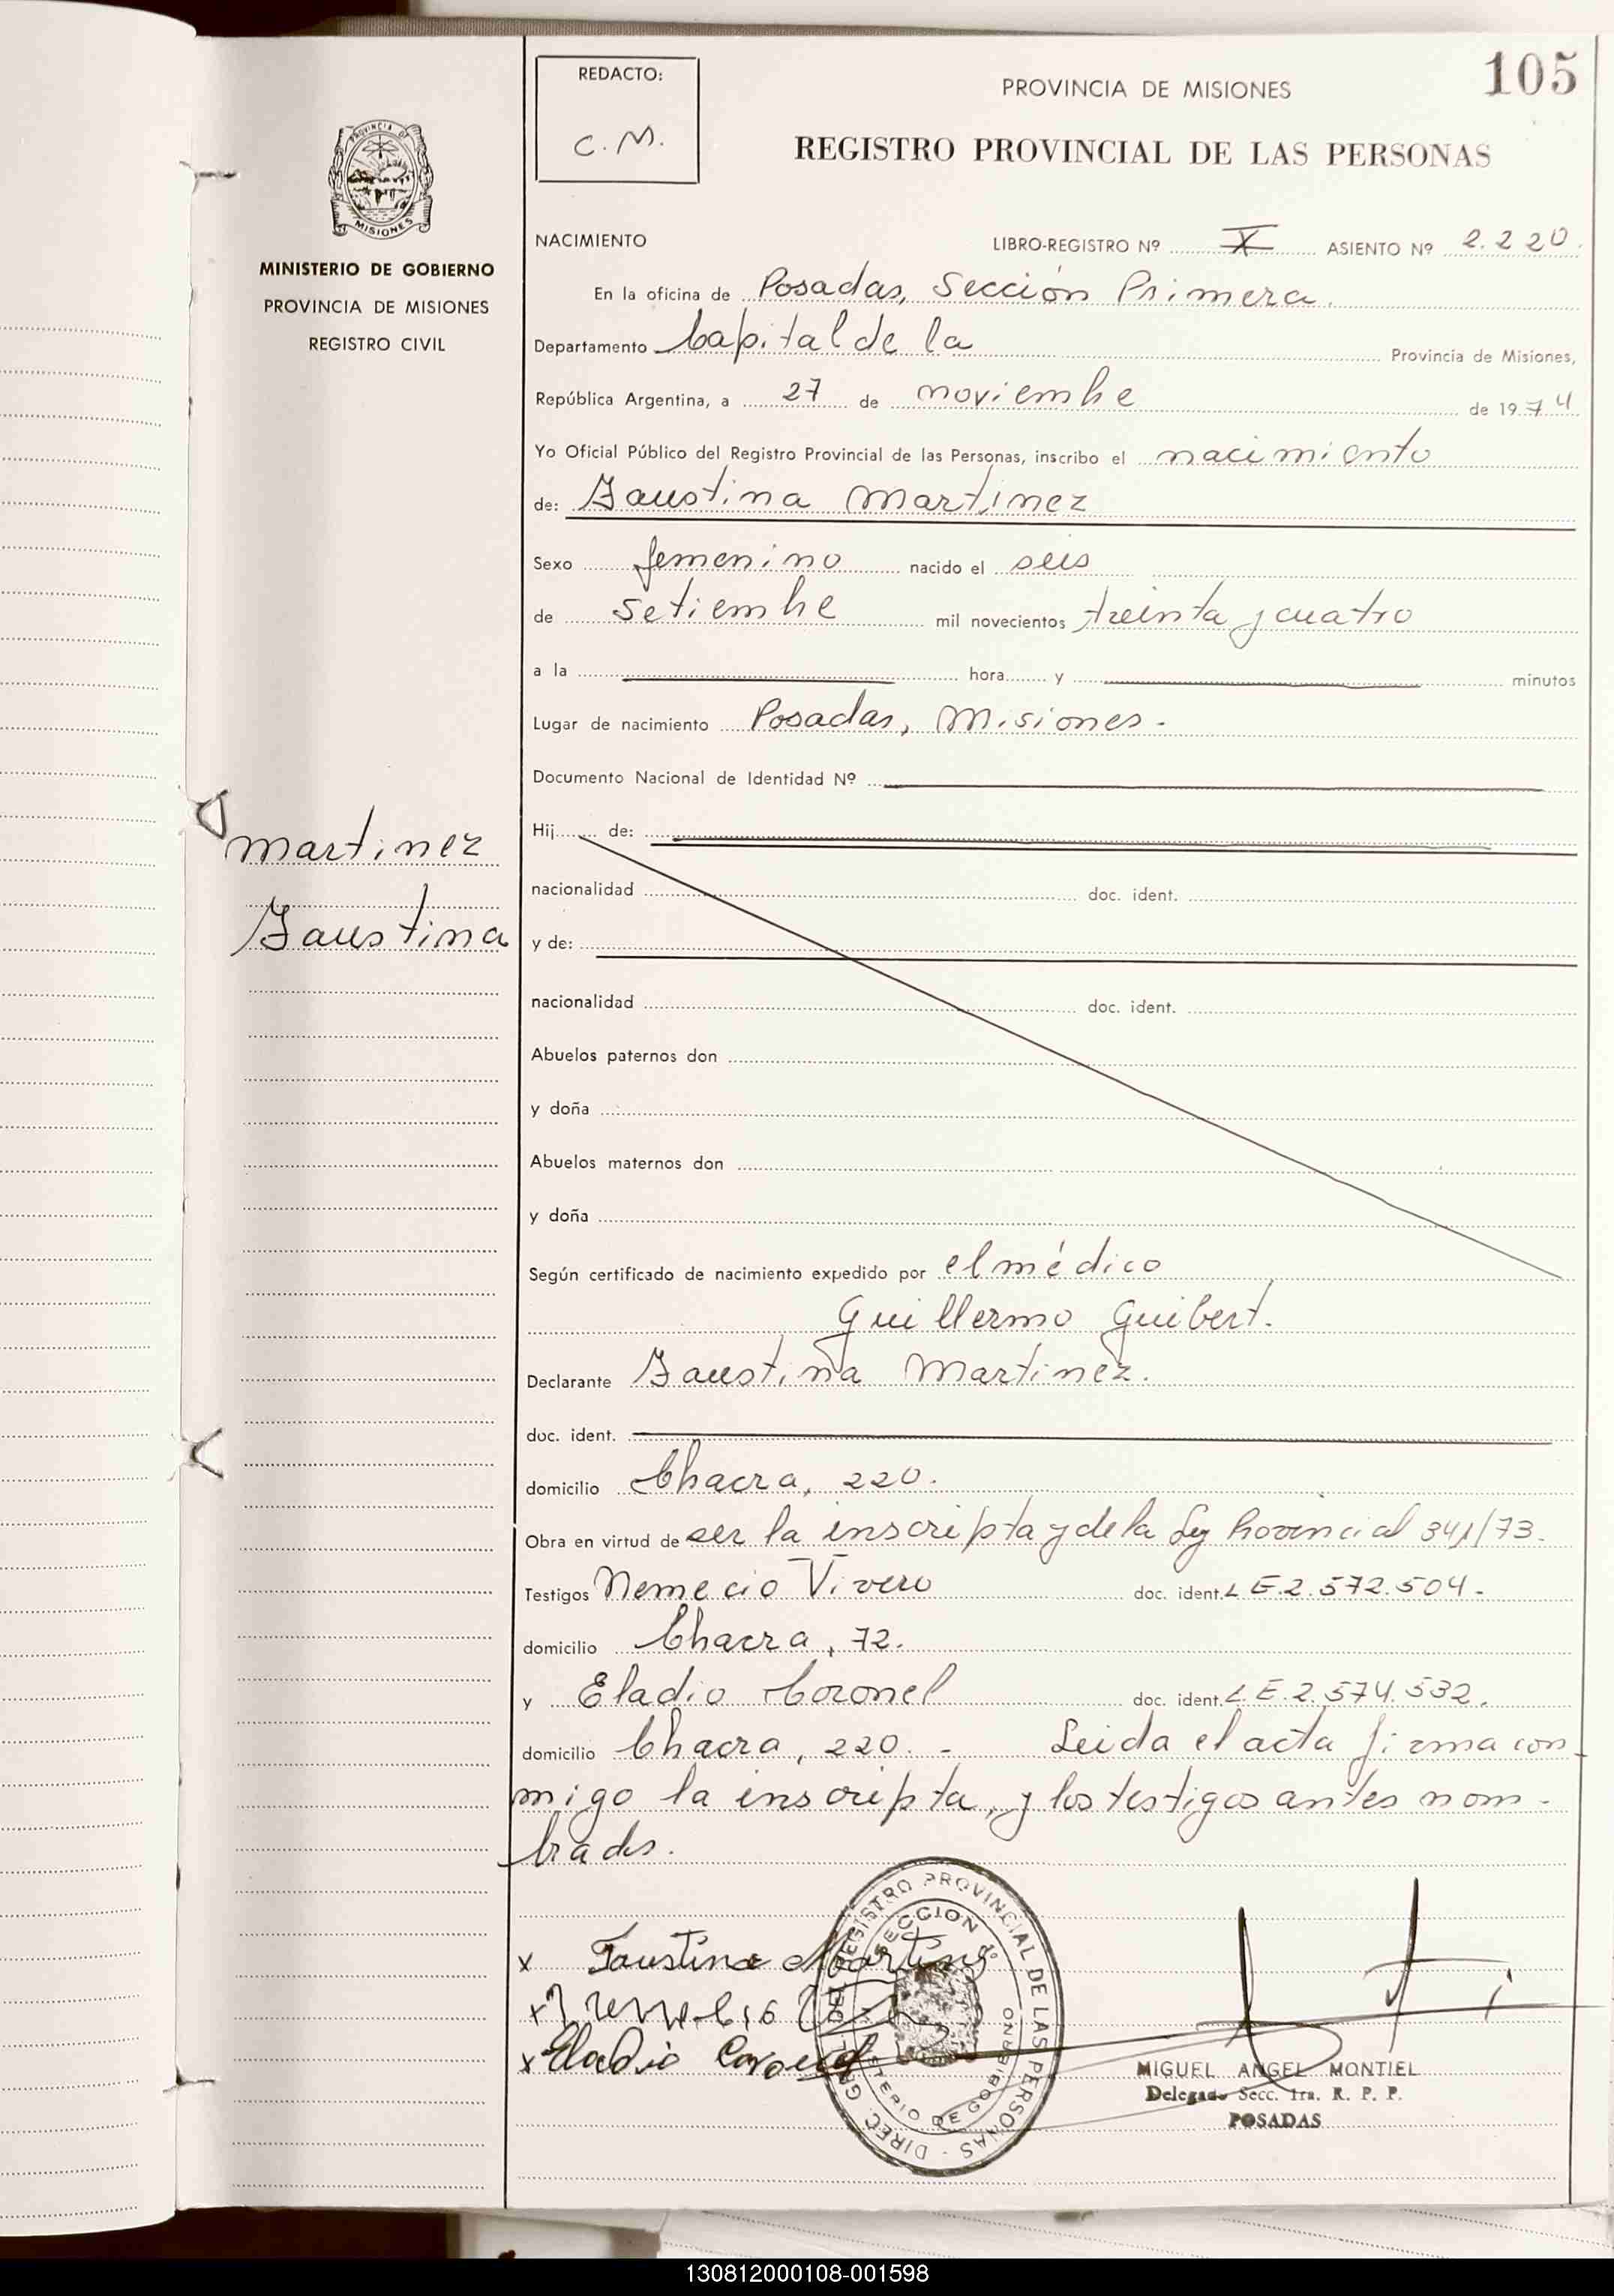 105
REDACTO:
C. M.
PROVINCIA DE MISIONES
REGISTRO PROVINCIAL DE LAS PERSONAS
PROVINCIA DE
MISIONES
MINISTERIO DE GOBIERNO
PROVINCIA DE MISIONES
REGISTRO CIVIL
NACIMIENTO LIBRO-REGISTRO Nº X ASIENTO Nº 2.220.
En la oficina de Posadas, Sección Primera.
Departamento Capital de la Provincia de Misiones,
República Argentina, a 27 de noviembre de 1974
Yo Oficial Público del Registro Provincial de las Personas, inscribo el nacimiento
de: Faustina Martinez
Sexo femenino nacido el seis
de setiembre mil novecientos treinta y cuatro
a la hora y minutos
Lugar de nacimiento Posadas, Misiones.
Documento Nacional de Identidad Nº
Martinez
Faustina
Hij de:
nacionalidad doc. ident.
y de:
nacionalidad doc. ident.
Abuelos paternos don
y doña
Abuelos maternos don
y doña
Según certificado de nacimiento expedido por el médico
Guillermo Guibert.
Declarante Faustina Martinez.
doc. ident.
domicilio Chacra, 220.
Obra en virtud de ser la inscripta y de la Ley Provincial 341/73.
Testigos Nemecio Vivero doc. ident. L E. 2.572.504.
domicilio Chacra, 72.
y Eladio Coronel doc. ident. L. E. 2.574.532.
domicilio Chacra, 220. - Leida el acta firma con
migo la inscripta, y los testigos antes nom-
brados.
x Faustina Martinez
x
x Eladio Coronel
DIREC. GRAL. DEL REGISTRO PROVINCIAL DE LAS PERSONAS -
SECCION
MINISTERIO DE GOBIERNO
MIGUEL ANGEL MONTIEL
Delegado Secc. 1ra. R. P. P.
POSADAS
130812000108-001598